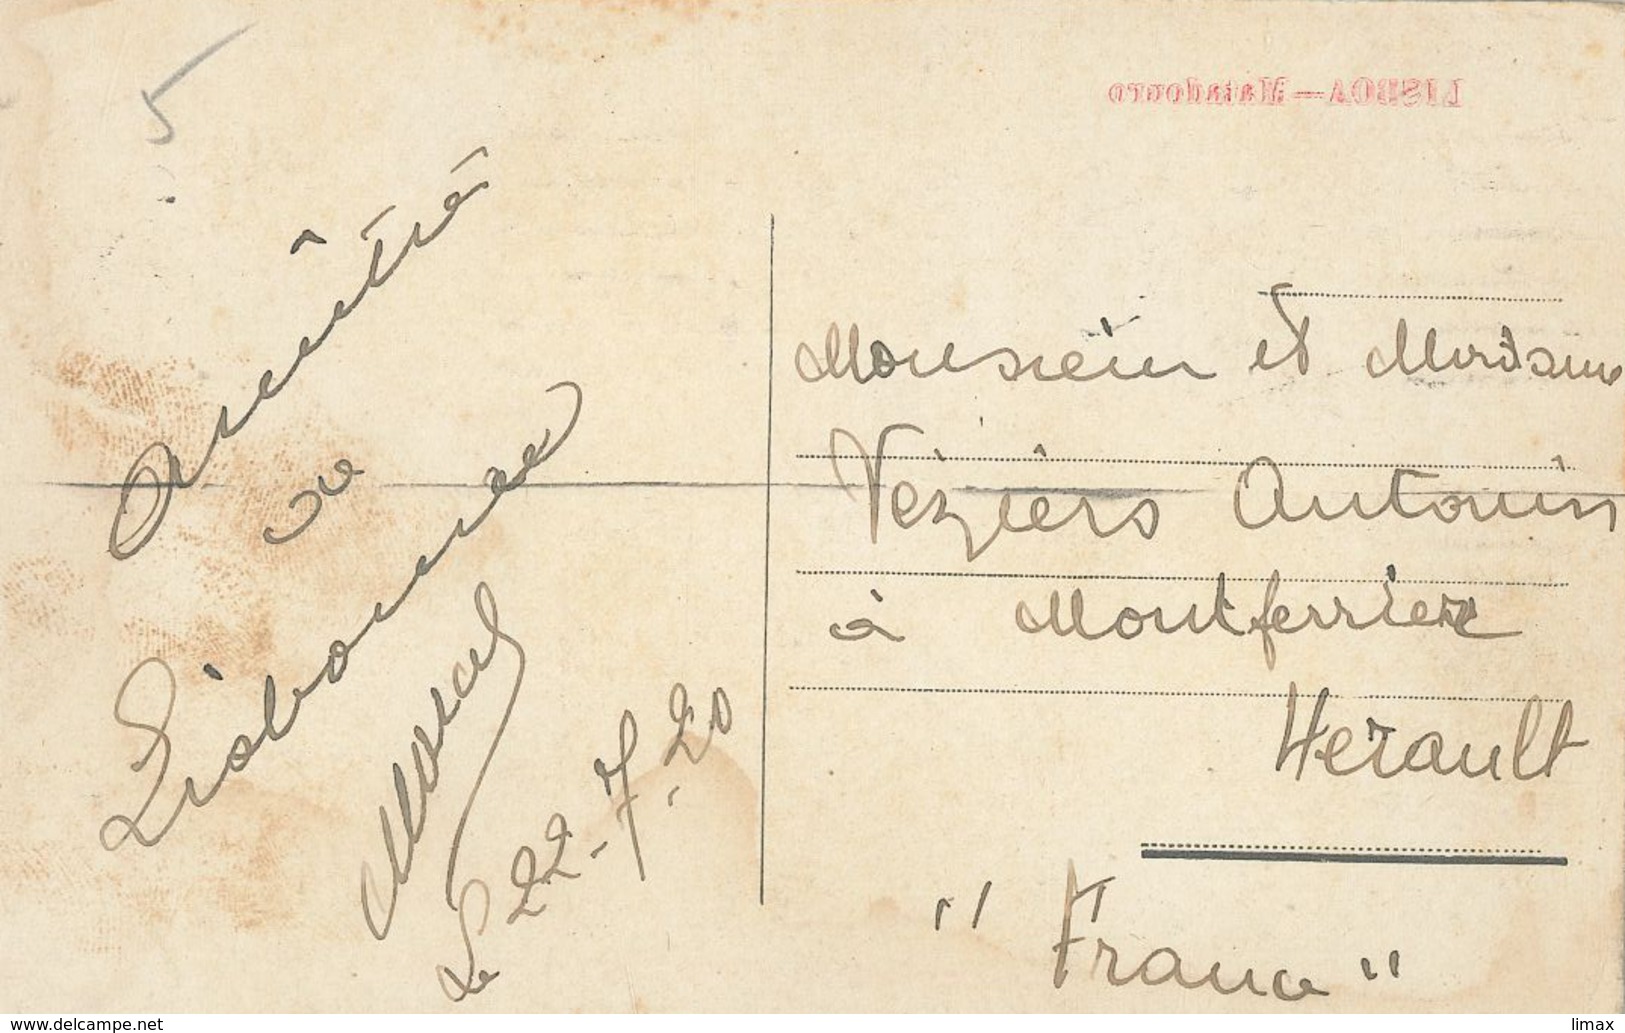 5
LISBOA—Matadouro
Arrêté
de
Lisbonne
Marcel
Le 22-7-20
Monsieur et Madame
Vèziers Antonin
à Montferrier
Hérault
"France"
delcampe.net
limax